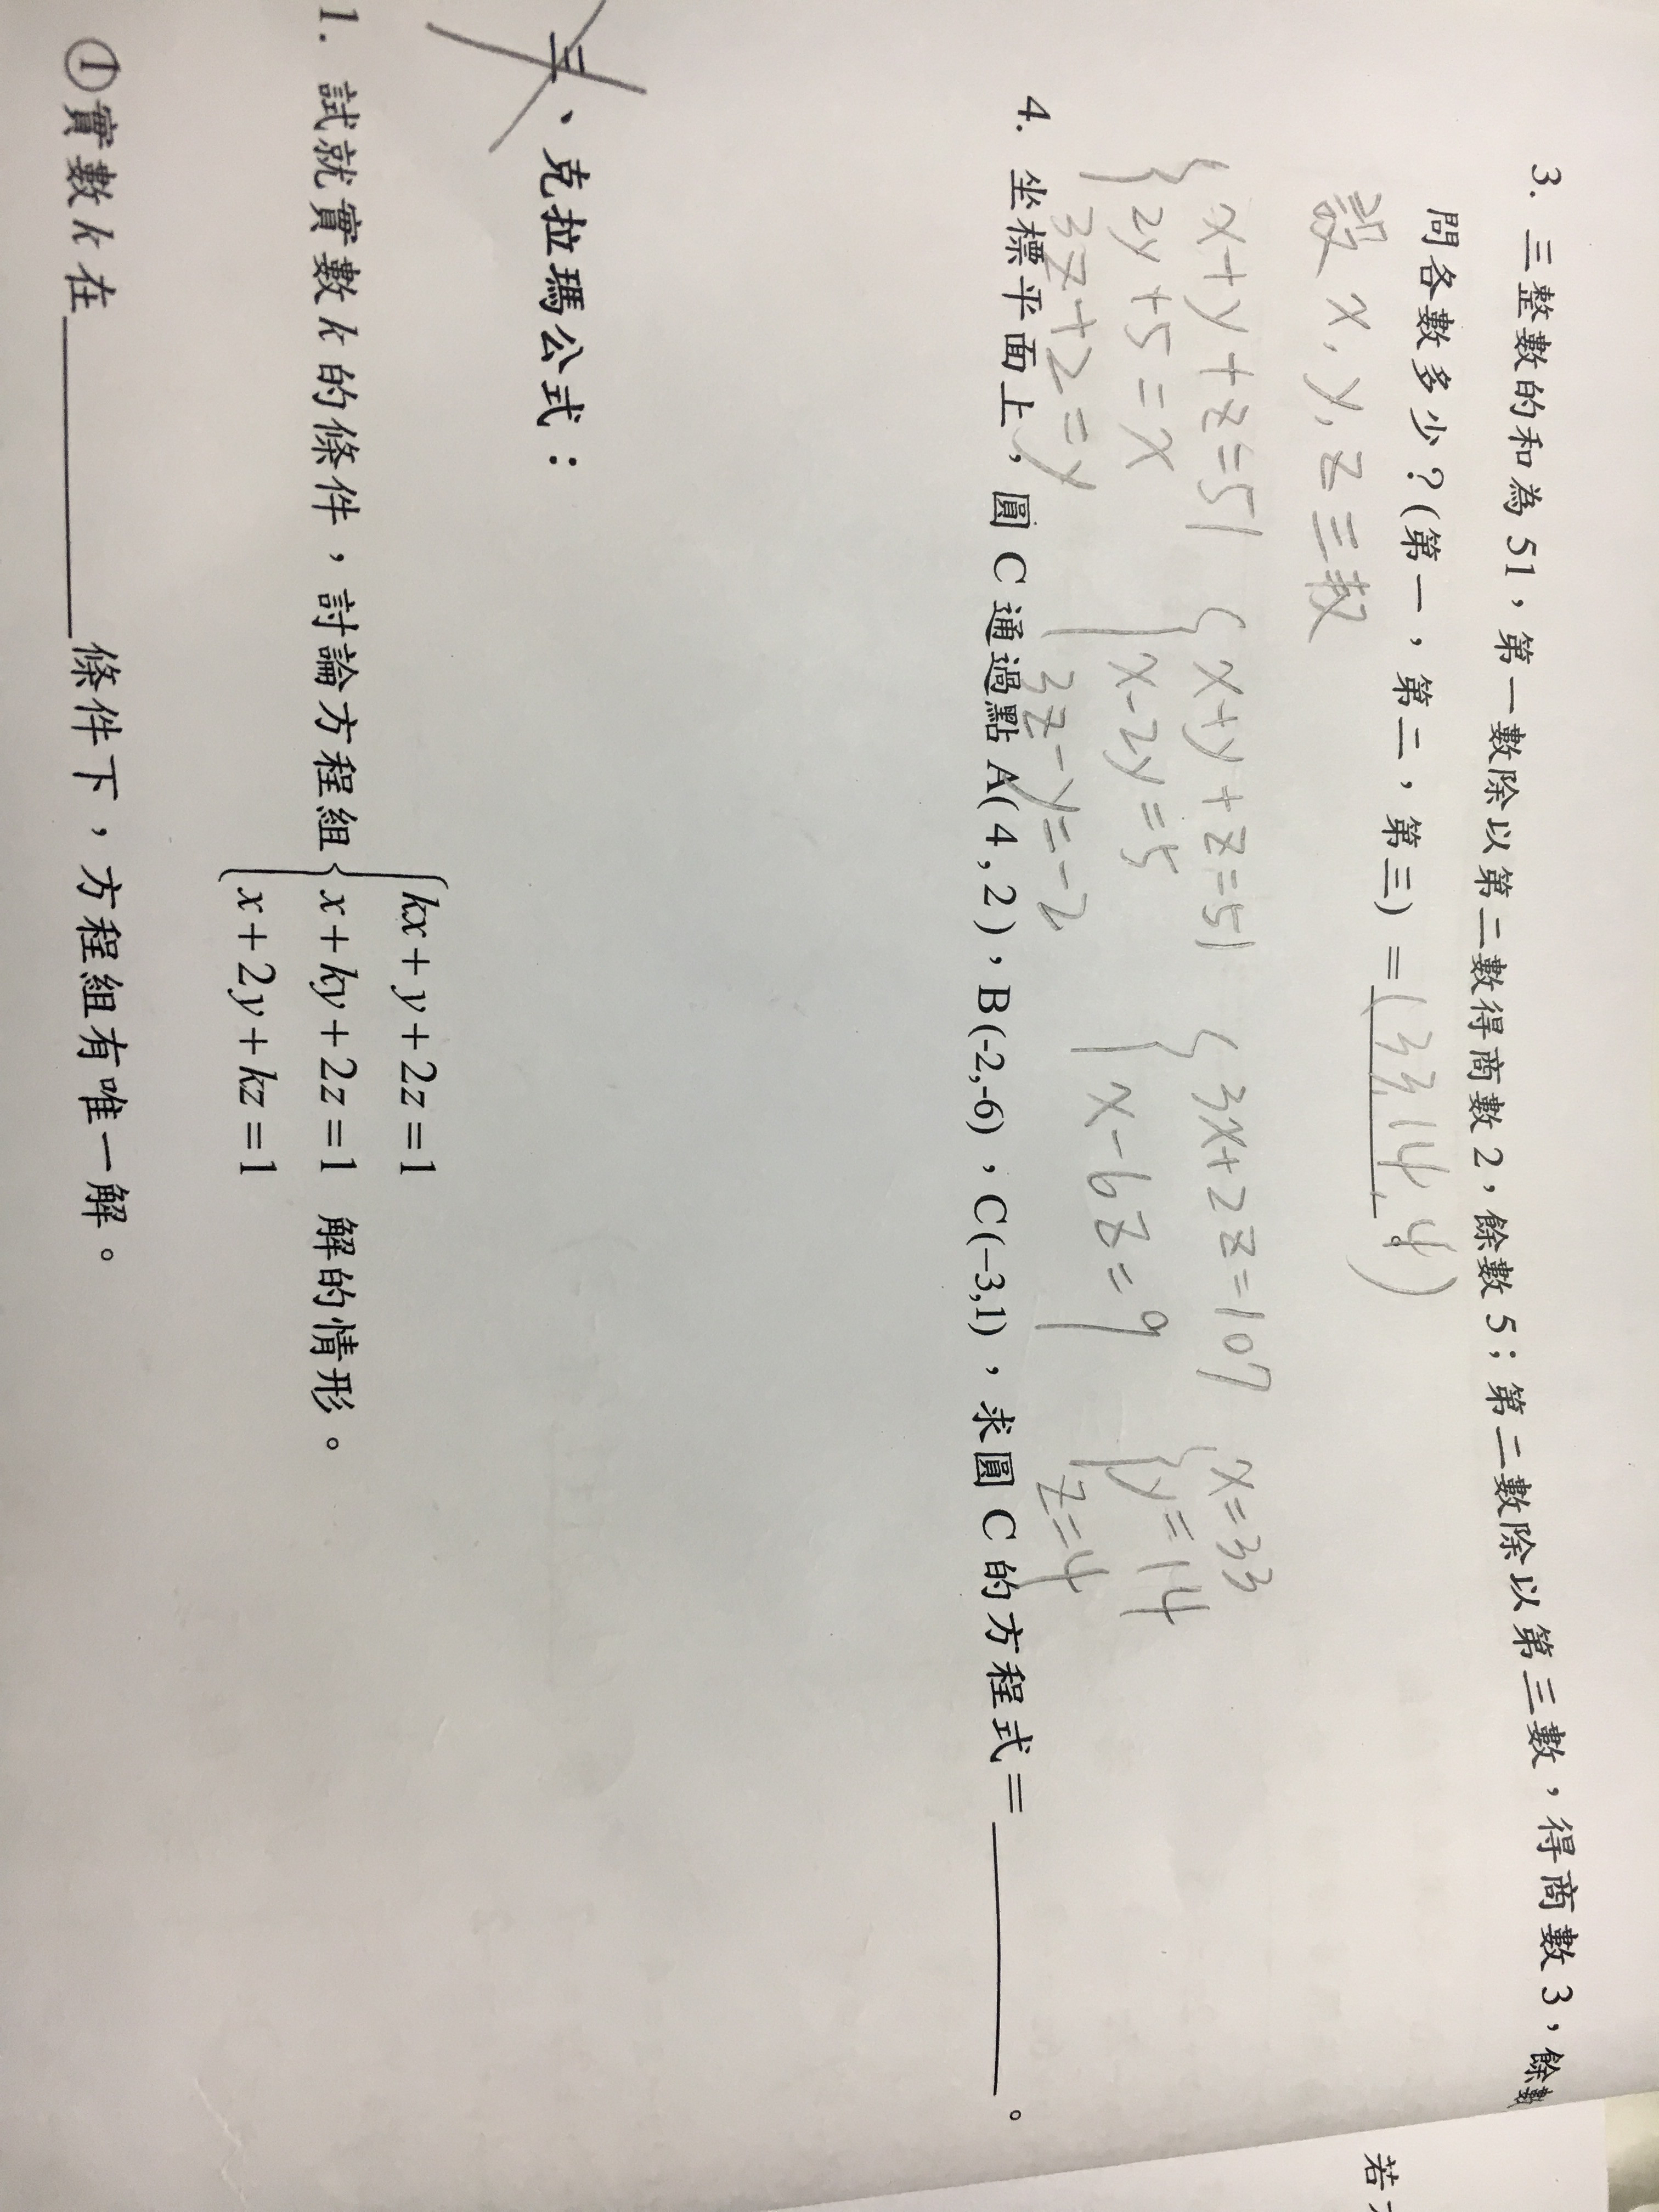 3. 三整數的和為 51，第一數除以第二數得商數 2，餘數 5；第二數除以第三數，得商數 3，餘數
問各數多少？(第一，第二，第三) = (33, 14, 4)
設 x, y, z 三數
{ x+y+z=51 { x+y+z=51 { 3x+2z=107 { x=33
2y+5=x x-2y=5 x-6z=9 y=14
3z+2=y 3z-y=-2 z=4
4. 坐標平面上，圓 C 通過點 A(4,2)，B(-2,-6)，C(-3,1)，求圓 C 的方程式=＿＿＿＿。
三、克拉瑪公式：
1. 試就實數 k 的條件，討論方程組 { kx+y+2z=1
x+ky+2z=1 解的情形。
x+2y+kz=1
①實數 k 在＿＿＿＿條件下，方程組有唯一解。
若